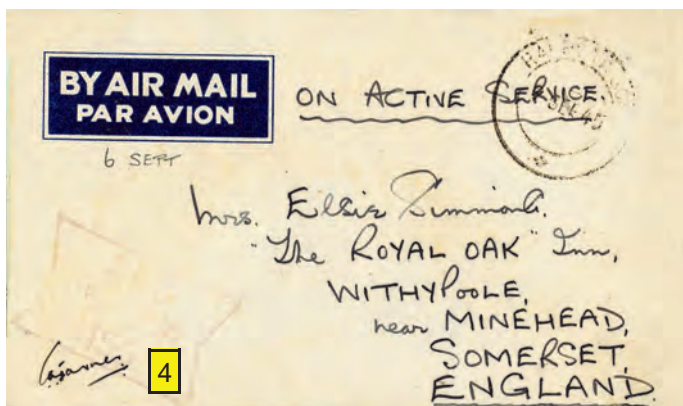 BY AIR MAIL
PAR AVION
ON ACTIVE SERVICE.
6 SEPT
Mrs. Elsie
"The ROYAL OAK" Inn,
WITHYPOOLE,
near MINEHEAD,
SOMERSET,
ENGLAND.
4